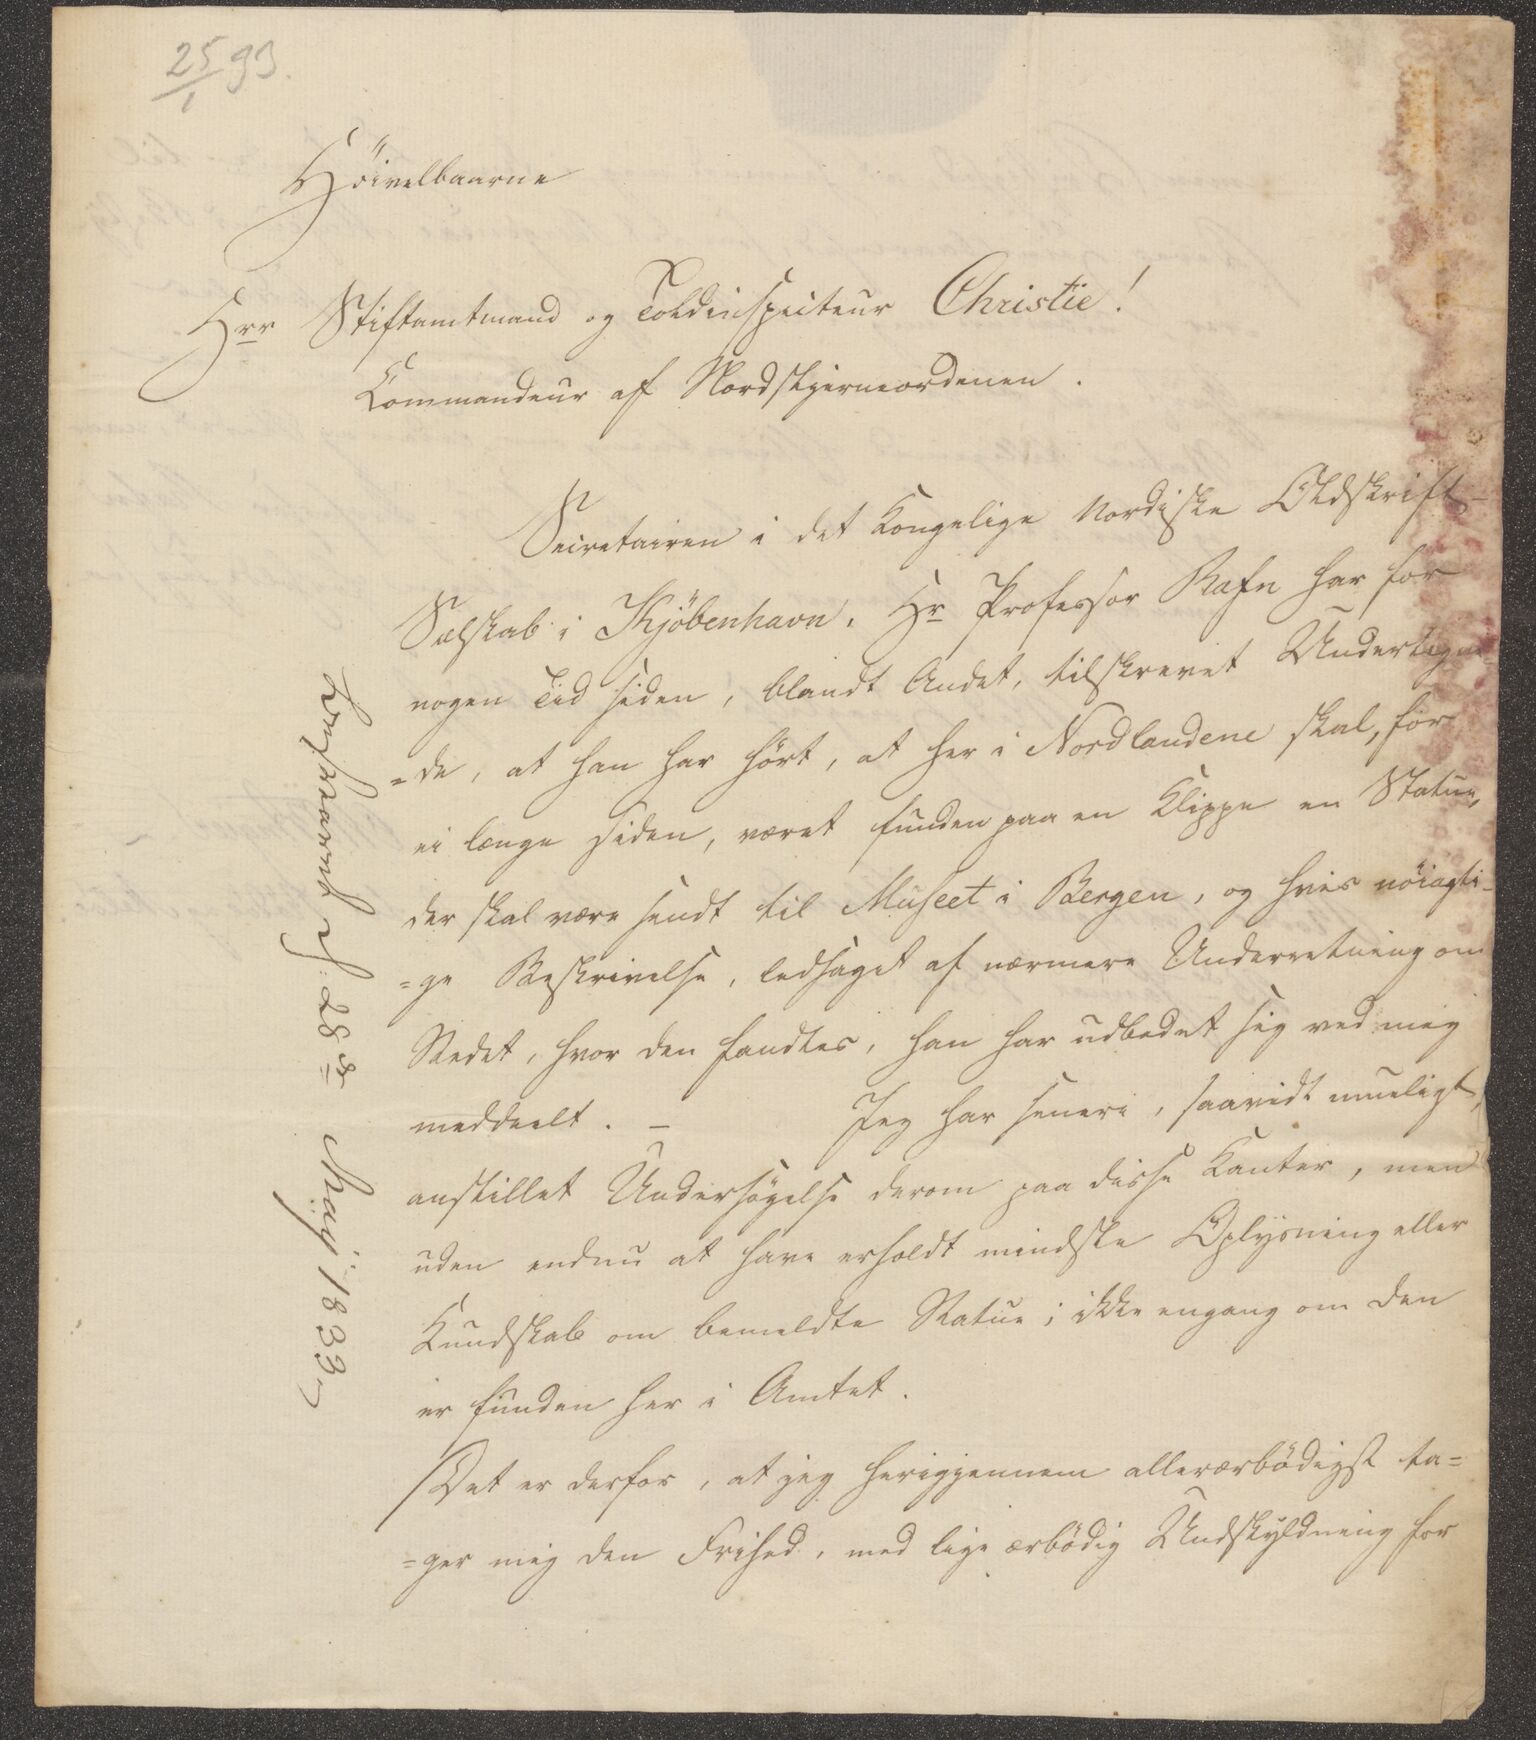 25/1 93.
Höivelbaarne
Hrr Stiftamtmand og Toldinspecteur Christie!
Commandeur af Nordstjerneordenen.
Secretairen i det Kongelige Nordiske Oldskrift-
Selskab i Kjöbenhavn, Hr Professor Rafn har for
nogen Tid siden, blandt Andet, tilskrevet Undertegne
=de, at han har hört, at her i Nordlandene skal, for
ei længe siden, været funden paa en Klippe en Statue,
der skal være sendt til Museet i Bergen, og hvis nöiagti-
=ge Beskrivelse, ledsaget af nærmere Underretning om
Stedet, hvor den fandtes, han har udbedet sig ved mig
meddeelt. — Jeg har senere, saavidt mueligt,
anstillet Undersögelse derom paa disse Kanter, men
uden endnu at have erholdt mindste Oplysning eller
Kundskab om bemeldte Statue; ikke engang om den
er funden her i Amtet.
Det er derfor, at jeg herigjennem allerærbödigst ta=
=ger mig den Frihed, med lige ærbödig Undskyldning for
Besvaret d. 28de May 1833.